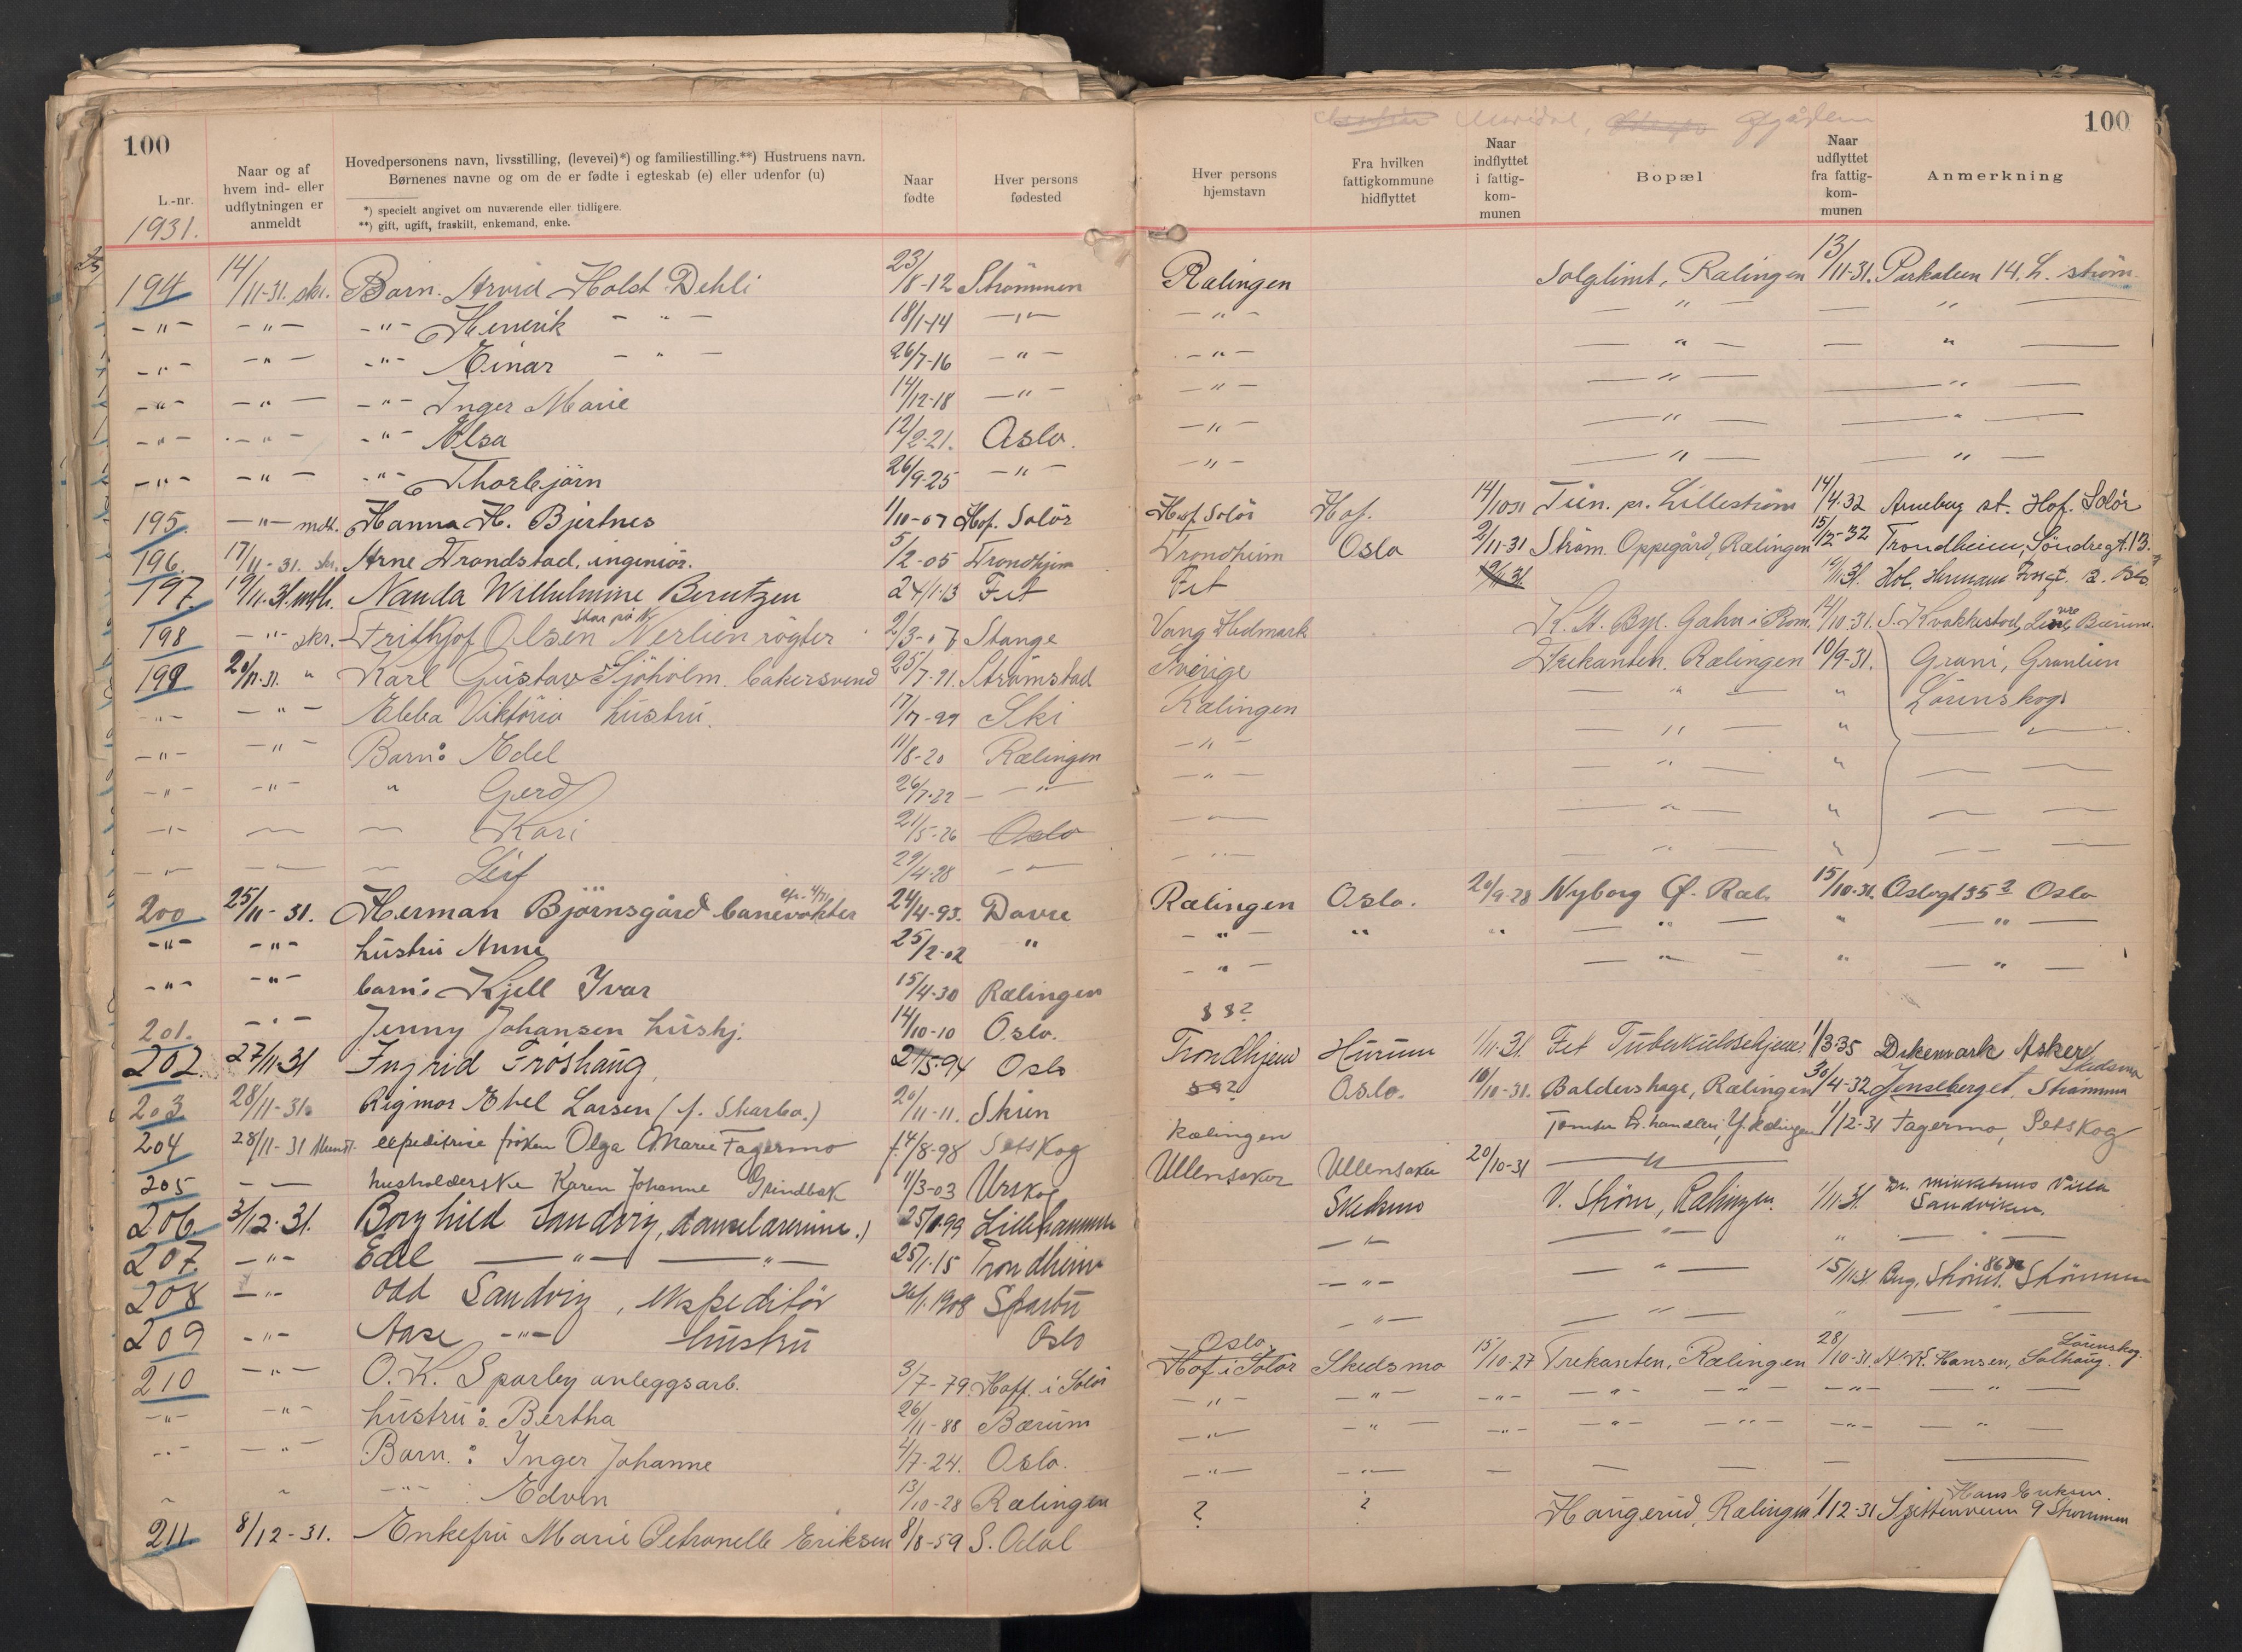 100
100
L.-nr.
1931.
Naar og af hvem ind- eller udflytningen er anmeldt
Hovedpersonens navn, livsstilling, (levevei)*) og familiestilling.**) Hustruens navn.
Børnenes navne og om de er fødte i egteskab (e) eller udenfor (u)
*) specielt angivet om nuværende eller tidligere.
**) gift, ugift, fraskilt, enkemand, enke.
Naar fødte
Hver persons fødested
Hver persons hjemstavn
Fra hvilken fattigkommune hidflyttet
Naar indflyttet i fattig-kom-munen
Bopæl
Naar udflyttet fra fattig-kom-munen
Anmerkning
194 14/11-31. skr. Barn. Arvid Holst Dehli 23/8-12 Strømmen Rælingen Solglimt, Rælingen 13/11-31. 14. L. strøm
-"- -"- -"- Henrik - " - 18/1-14 -"- -"- - " - - " -
-"- -"- -"- Einar - " - 26/7-16 -"- -"- - " - - " -
-"- -"- -"- Inger Marie 14/12-18 -"- -"- - " - - " -
-"- -"- -"- Elsa 12/2-21. Oslo. -"- - " - - " -
-"- -"- -"- Thorbjörn 26/9-25 -"- -"- - " - - " -
195 -"- mdt. Hanna H. Bjertnes 1/10-07 Hof. Solör Hof Solör Hof. 14/10 31 Tien. pr. Lilleström 14/4.32 Arneberg st. Hof. Solör
196. 17/11-31. skr. Arne Trondstad, ingeniör. 5/2-05 Trondhjem Trondheim Oslo 2/11-31 Strøm. Oppegård, Rælingen 15/2-32 Trondheim, Söndregt. 13.
197. 19/11.31. mth. Nanda Wilhelmine Berntzen 24/1.13 Fet Fet 19/11.31. Hol. Hermans Oslo
198 -"- skr. Frithjof Olsen Nerlien rögter 2/3-07 Stange Vang Hedmark 14/10-31. S. Kvakkestad, Bærum.
199 20/11-31. " Karl Gustav Sjöholm bakersvend 25/7-91. Strömstad Sverige Trekanten. Rælingen 10/9-31. Grani, Granlien
-"- -"- Ebba Viktoria hustru. 17/7-99 Ski Rælingen - " - " Lörenskog
-"- -"- Barn: Edel 11/8-20 Rælingen -"- - " - "
-"- -"- " Gerd 26/7-22 -"- -"- - " - "
-"- Kari 21/5-26 Oslo - " - "
-"- Leif 29/4-28 -"- - " - "
200 25/11-31. Herman Björnsgård banevokter 24/4-93. Dovre Rælingen Oslo. 20/9-28 Nyborg Ø. Ræl. 15/10-31. Oslogt 35 Oslo
-"- -"- hustru Anne 25/2-02 " -"- " " - " - " - " -
-"- -"- barn: Kjell Ivar 15/4-30 Rælingen -"- - " - " - " -
201. -"- Jenny Johansen hushj. 14/10-10 Oslo. § §?
202. 27/11-31 Ingrid Fröshaug 27/5-94 Oslo Trondhjem Hurum 1/11-31. Fet Tuberkulosehjem 1/3-35 Dikemark Asker
203 28/11-31. Rigmor Ethel Larsen (f. Skarbo.) 20/11-11. Skien §§? Oslo. 10/10-31. Baldershage, Rælingen 30/4-32 Jenseberget, Strømmen Skedsmo
204 28/11-31 Mundt. expeditrise frøken Olga Marie Fagermo f. 4/8-98 Setskog Rælingen Tomter 1/12-31 Fagermo, Setskog
205 - - husholderske Karen Johanne Grindbak 11/3-03 Urskog Ullensaker Ullensaker 20/10-31 - " -
206. 3/12-31. Borghild Sandvig, danselærerinne.) 25/ 99 Lillehammer Skedsmo V. Strøm, Rælingen. 1/11-31. Dr. Villa Sandviken.
207. -"- Edel - " - - " - 25/1-15 Trondheim -"- - " - " - " -
208 -"- Odd Sandvig, ekspeditör 26/1.1908 Sparbu -"- - " - 15/11.31 Strömmen
209 -"- Aase -"- hustru Oslo -"- - " - " - " -
210 -"- O. K. Sparby anleggsarb. 3/7-79. Hoff. i Solör Oslo, Hof i Solör Skedsmo 15/10-27 Trekanten, Rælingen 28/10-31. Hansen, Solhaug. Lörenskog.
-"- -"- hustru: Bertha 26/11-88 Bærum -"- -"- -"- -"- -"- -"- -"-
-"- -"- Barn.: Inger Johanne 4/7-24. Oslo. -"- -"- -"- -"- -"- -"- -"-
-"- Edvin 13/10-28 Rælingen -"- -"-
211 8/12-31. Enkefru Marie Petronelle Eriksen 8/8-59 S. Odal ? ? Haugerud, Rælingen 1/12-31 Hans Eriksen. 9 Strömmen